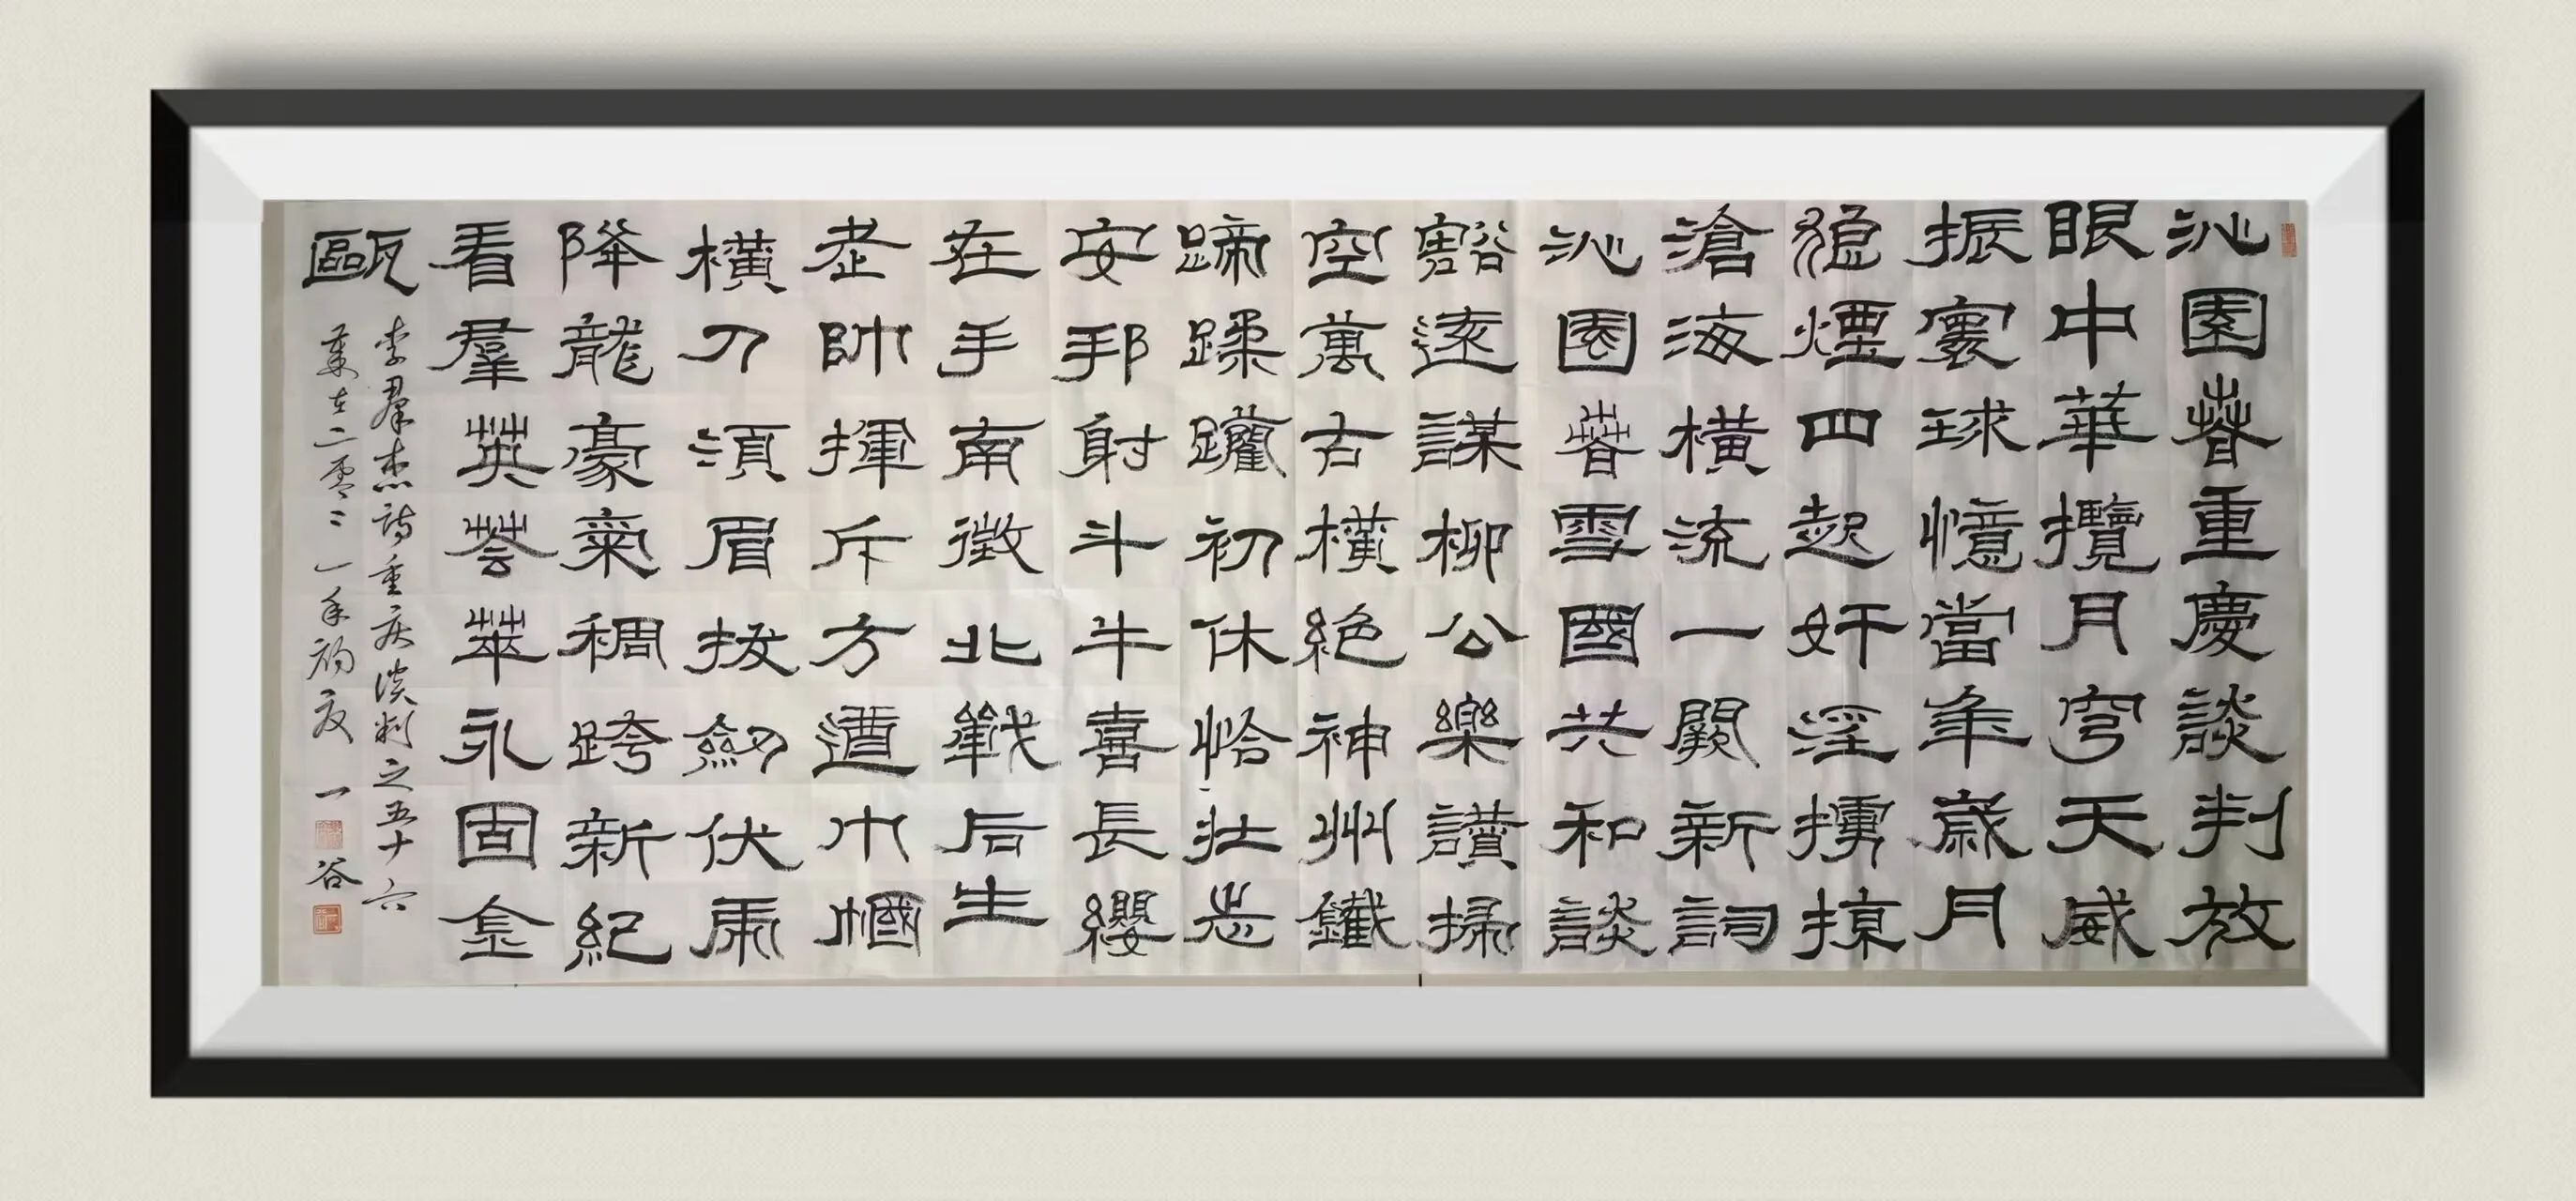 沁園春重慶談判放
眼中華攬月穹天威
振寰球憶當年歲月
狼煙四起奸淫擄掠
滄海橫流一闋新詞
沁園春雪國共和談
豁達謀柳公樂讚掃
空萬古橫絕神州鐵
蹄蹂躪初休恰壯志
安邦射斗牛喜長纓
在手南徵北戰后生
老帥揮斥方遒巾幗
橫刀須眉拔劍伏虎
降龍豪氣稠跨新紀
看羣英薈萃永固金
甌
李羣杰詩重庆谈判之五十六
岁在二零二一年初夏一谷